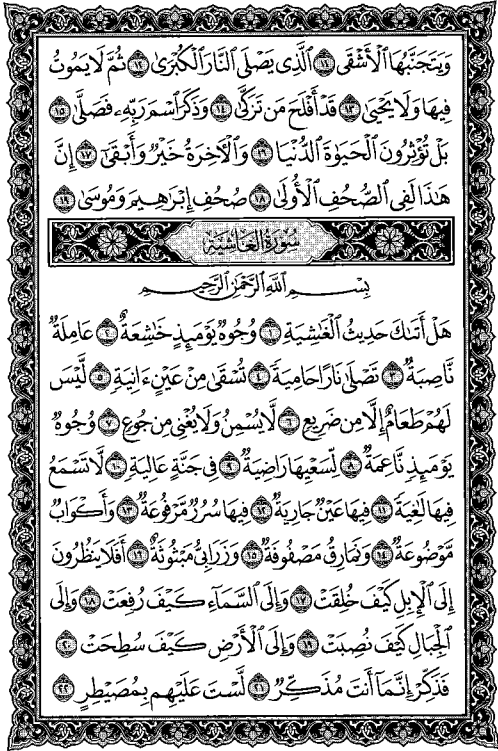 وَيَتَجَنَّبُهَا ٱلْأَشْقَى ١١ ٱلَّذِى يَصْلَى ٱلنَّارَ ٱلْكُبْرَىٰ ١٢ ثُمَّ لَا يَمُوتُ
فِيهَا وَلَا يَحْيَىٰ ١٣ قَدْ أَفْلَحَ مَن تَزَكَّىٰ ١٤ وَذَكَرَ ٱسْمَ رَبِّهِۦ فَصَلَّىٰ ١٥
بَلْ تُؤْثِرُونَ ٱلْحَيَوٰةَ ٱلدُّنْيَا ١٦ وَٱلْـَٔاخِرَةُ خَيْرٌ وَأَبْقَىٰٓ ١٧ إِنَّ
هَٰذَا لَفِى ٱلصُّحُفِ ٱلْأُولَىٰ ١٨ صُحُفِ إِبْرَٰهِيمَ وَمُوسَىٰ ١٩
سُورَةُ الْغَاشِيَةِ
بِسْمِ ٱللَّهِ ٱلرَّحْمَٰنِ ٱلرَّحِيمِ
هَلْ أَتَىٰكَ حَدِيثُ ٱلْغَٰشِيَةِ ١ وُجُوهٌ يَوْمَئِذٍ خَٰشِعَةٌ ٢ عَامِلَةٌ
نَّاصِبَةٌ ٣ تَصْلَىٰ نَارًا حَامِيَةً ٤ تُسْقَىٰ مِنْ عَيْنٍ ءَانِيَةٍ ٥ لَّيْسَ
لَهُمْ طَعَامٌ إِلَّا مِن ضَرِيعٍ ٦ لَّا يُسْمِنُ وَلَا يُغْنِى مِن جُوعٍ ٧ وُجُوهٌ
يَوْمَئِذٍ نَّاعِمَةٌ ٨ لِّسَعْيِهَا رَاضِيَةٌ ٩ فِى جَنَّةٍ عَالِيَةٍ ١٠ لَّا تَسْمَعُ
فِيهَا لَٰغِيَةً ١١ فِيهَا عَيْنٌ جَارِيَةٌ ١٢ فِيهَا سُرُرٌ مَّرْفُوعَةٌ ١٣ وَأَكْوَابٌ
مَّوْضُوعَةٌ ١٤ وَنَمَارِقُ مَصْفُوفَةٌ ١٥ وَزَرَابِىُّ مَبْثُوثَةٌ ١٦ أَفَلَا يَنظُرُونَ
إِلَى ٱلْإِبِلِ كَيْفَ خُلِقَتْ ١٧ وَإِلَى ٱلسَّمَآءِ كَيْفَ رُفِعَتْ ١٨ وَإِلَى
ٱلْجِبَالِ كَيْفَ نُصِبَتْ ١٩ وَإِلَى ٱلْأَرْضِ كَيْفَ سُطِحَتْ ٢٠
فَذَكِّرْ إِنَّمَآ أَنتَ مُذَكِّرٌ ٢١ لَّسْتَ عَلَيْهِم بِمُصَيْطِرٍ ٢٢